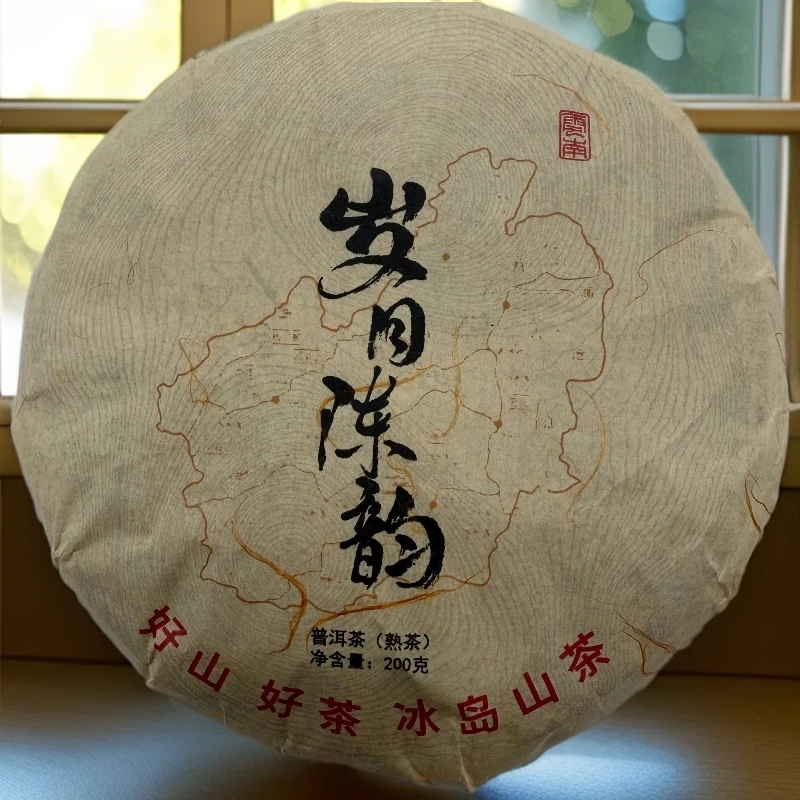 雲南
岁月陈韵
普洱茶（熟茶）
净含量：200克
好山 好茶 冰岛山茶